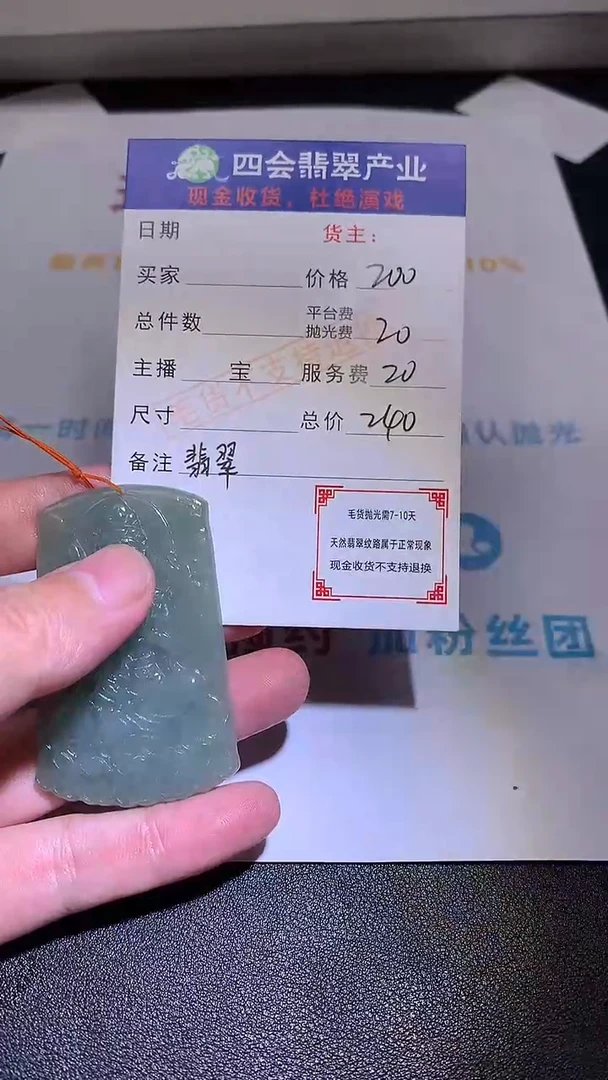 四会翡翠产业
现金收货,杜绝演戏
日期 货主:
买家 价格 200
总件数 平台费 抛光费 20
主播 宝 服务费 20
尺寸 总价 240
备注 翡翠
毛货抛光需7-10天
天然翡翠纹路属于正常现象
现金收货不支持退换
10%
认抛光
加粉丝团